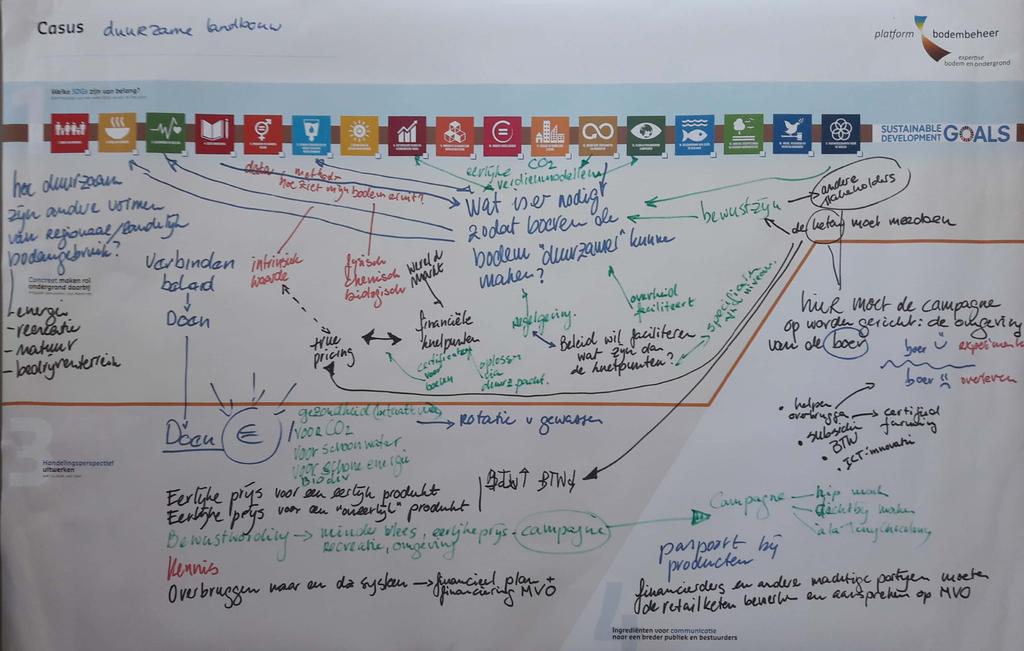 Casus duurzame landbouw
platform bodembeheer
expertise
bodem en ondergrond
1
Welke SDGs zijn van belang?
SUSTAINABLE
DEVELOPMENT GOALS
hoe duurzaam
zijn andere vormen
van regionaal/landelijk
bodemgebruik?
- energie
- recreatie
- natuur
- bedrijventerrein
Concreet maken rol
ondergrond daarbij
verbinden
beleid
Doen
Doen
€
data
methode
hoe ziet mijn bodem eruit?
intrinsieke
waarde
fysisch
chemisch
biologisch
wereld
markt
true
pricing
financiële
knelpunten
certificaten
voor
boeren
oplossen
via
duurz. pacht.
eerlijke CO2
verdienmodellen
Wat is er nodig
zodat boeren de
bodem "duurzamer" kunnen
maken?
regelgeving.
overheid
faciliteert
Beleid wil faciliteren
wat zijn dan
de knelpunten?
specifieke
niveau.
bewustzijn
andere
stakeholders
de keten moet meedoen
hier moet de campagne
op worden gericht: de omgeving
van de boer
boer experiment
boer overleven
• helpen
overbruggen
• subsidie
BTW
• ICT-innovatie
certified
farming
3
Handelingsperspectief
uitwerken
gezondheid
voor CO2
voor schoon water
voor schone energie
Biodiv
rotatie v gewassen
Eerlijke prijs voor een eerlijk produkt
Eerlijke prijs voor een "oneerlijk" produkt
BTW↑ BTW↓
Bewustwording → minder vlees, eerlijke prijs - campagne
recreatie, omgeving
Kennis
Overbruggen naar en da systeem → financieel plan +
financiering MVO
Campagne
hip mak
dichtbij maken
à la Tony Chocolony
paspoort bij
producten
financierders en andere machtige partijen moeten
de retailketen bewerken en aanspreken op MVO
4
Ingrediënten voor communicatie
naar een breder publiek en bestuurders